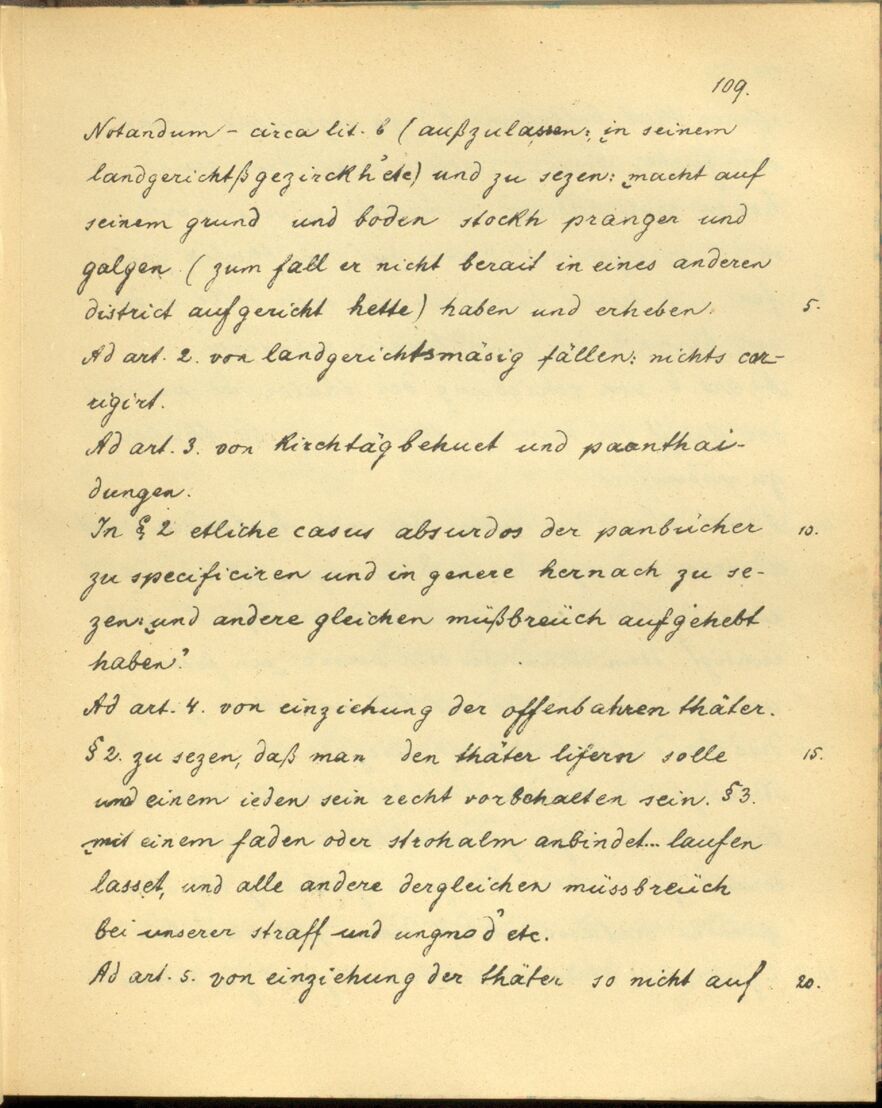 109.
Notandum – circa lit. b (außzulassen: „in seinem
landgerichtßgezirckh“ etc) und zu sezen: „macht auf
seinem grund und boden stockh pranger und
galgen (zum fall er nicht berait in eines anderen
district aufgericht hette) haben und erheben. 5.
Ad art. 2. von landgerichtsmäsig fällen: nichts cor-
rigirt.
Ad art. 3. von kirchtägbehuet und paanthai-
dungen.
In § 2 etliche casus absurdos der panbücher 10.
zu specificiren und in genere hernach zu se-
zen: „und andere gleichen müßbreüch aufgehebt
haben“.
Ad art. 4. von einziehung der offenbahren thäter.
§ 2. zu sezen, daß man den thäter lifern solle 15.
und einem ieden sein recht vorbehalten sein. § 3.
„mit einem faden oder strohalm anbindet... laufen
lasset, und alle andere dergleichen müssbreüch
bei unserer straff und ungnad“ etc.
Ad art. 5. von einziehung der thäter so nicht auf 20.